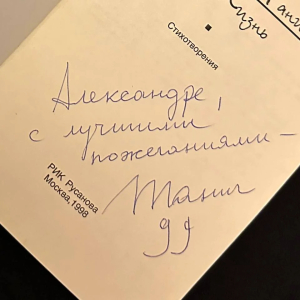 жизнь
Стихотворения
Александре,
с лучшими
пожеланиями –
Танич
99
РИК Русанова
Москва, 1998